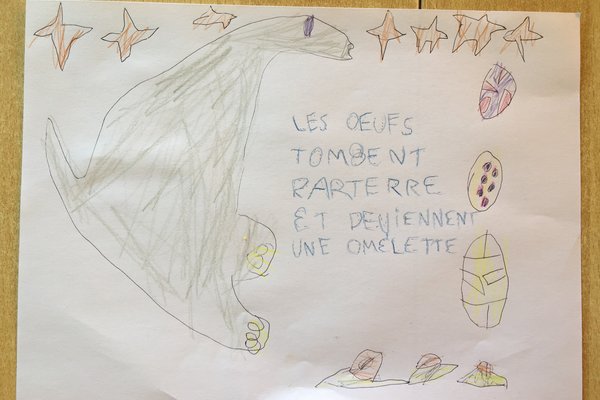 LES OEUFS
TOMBENT
PARTERRE
ET DEVIENNENT
UNE OMELETTE